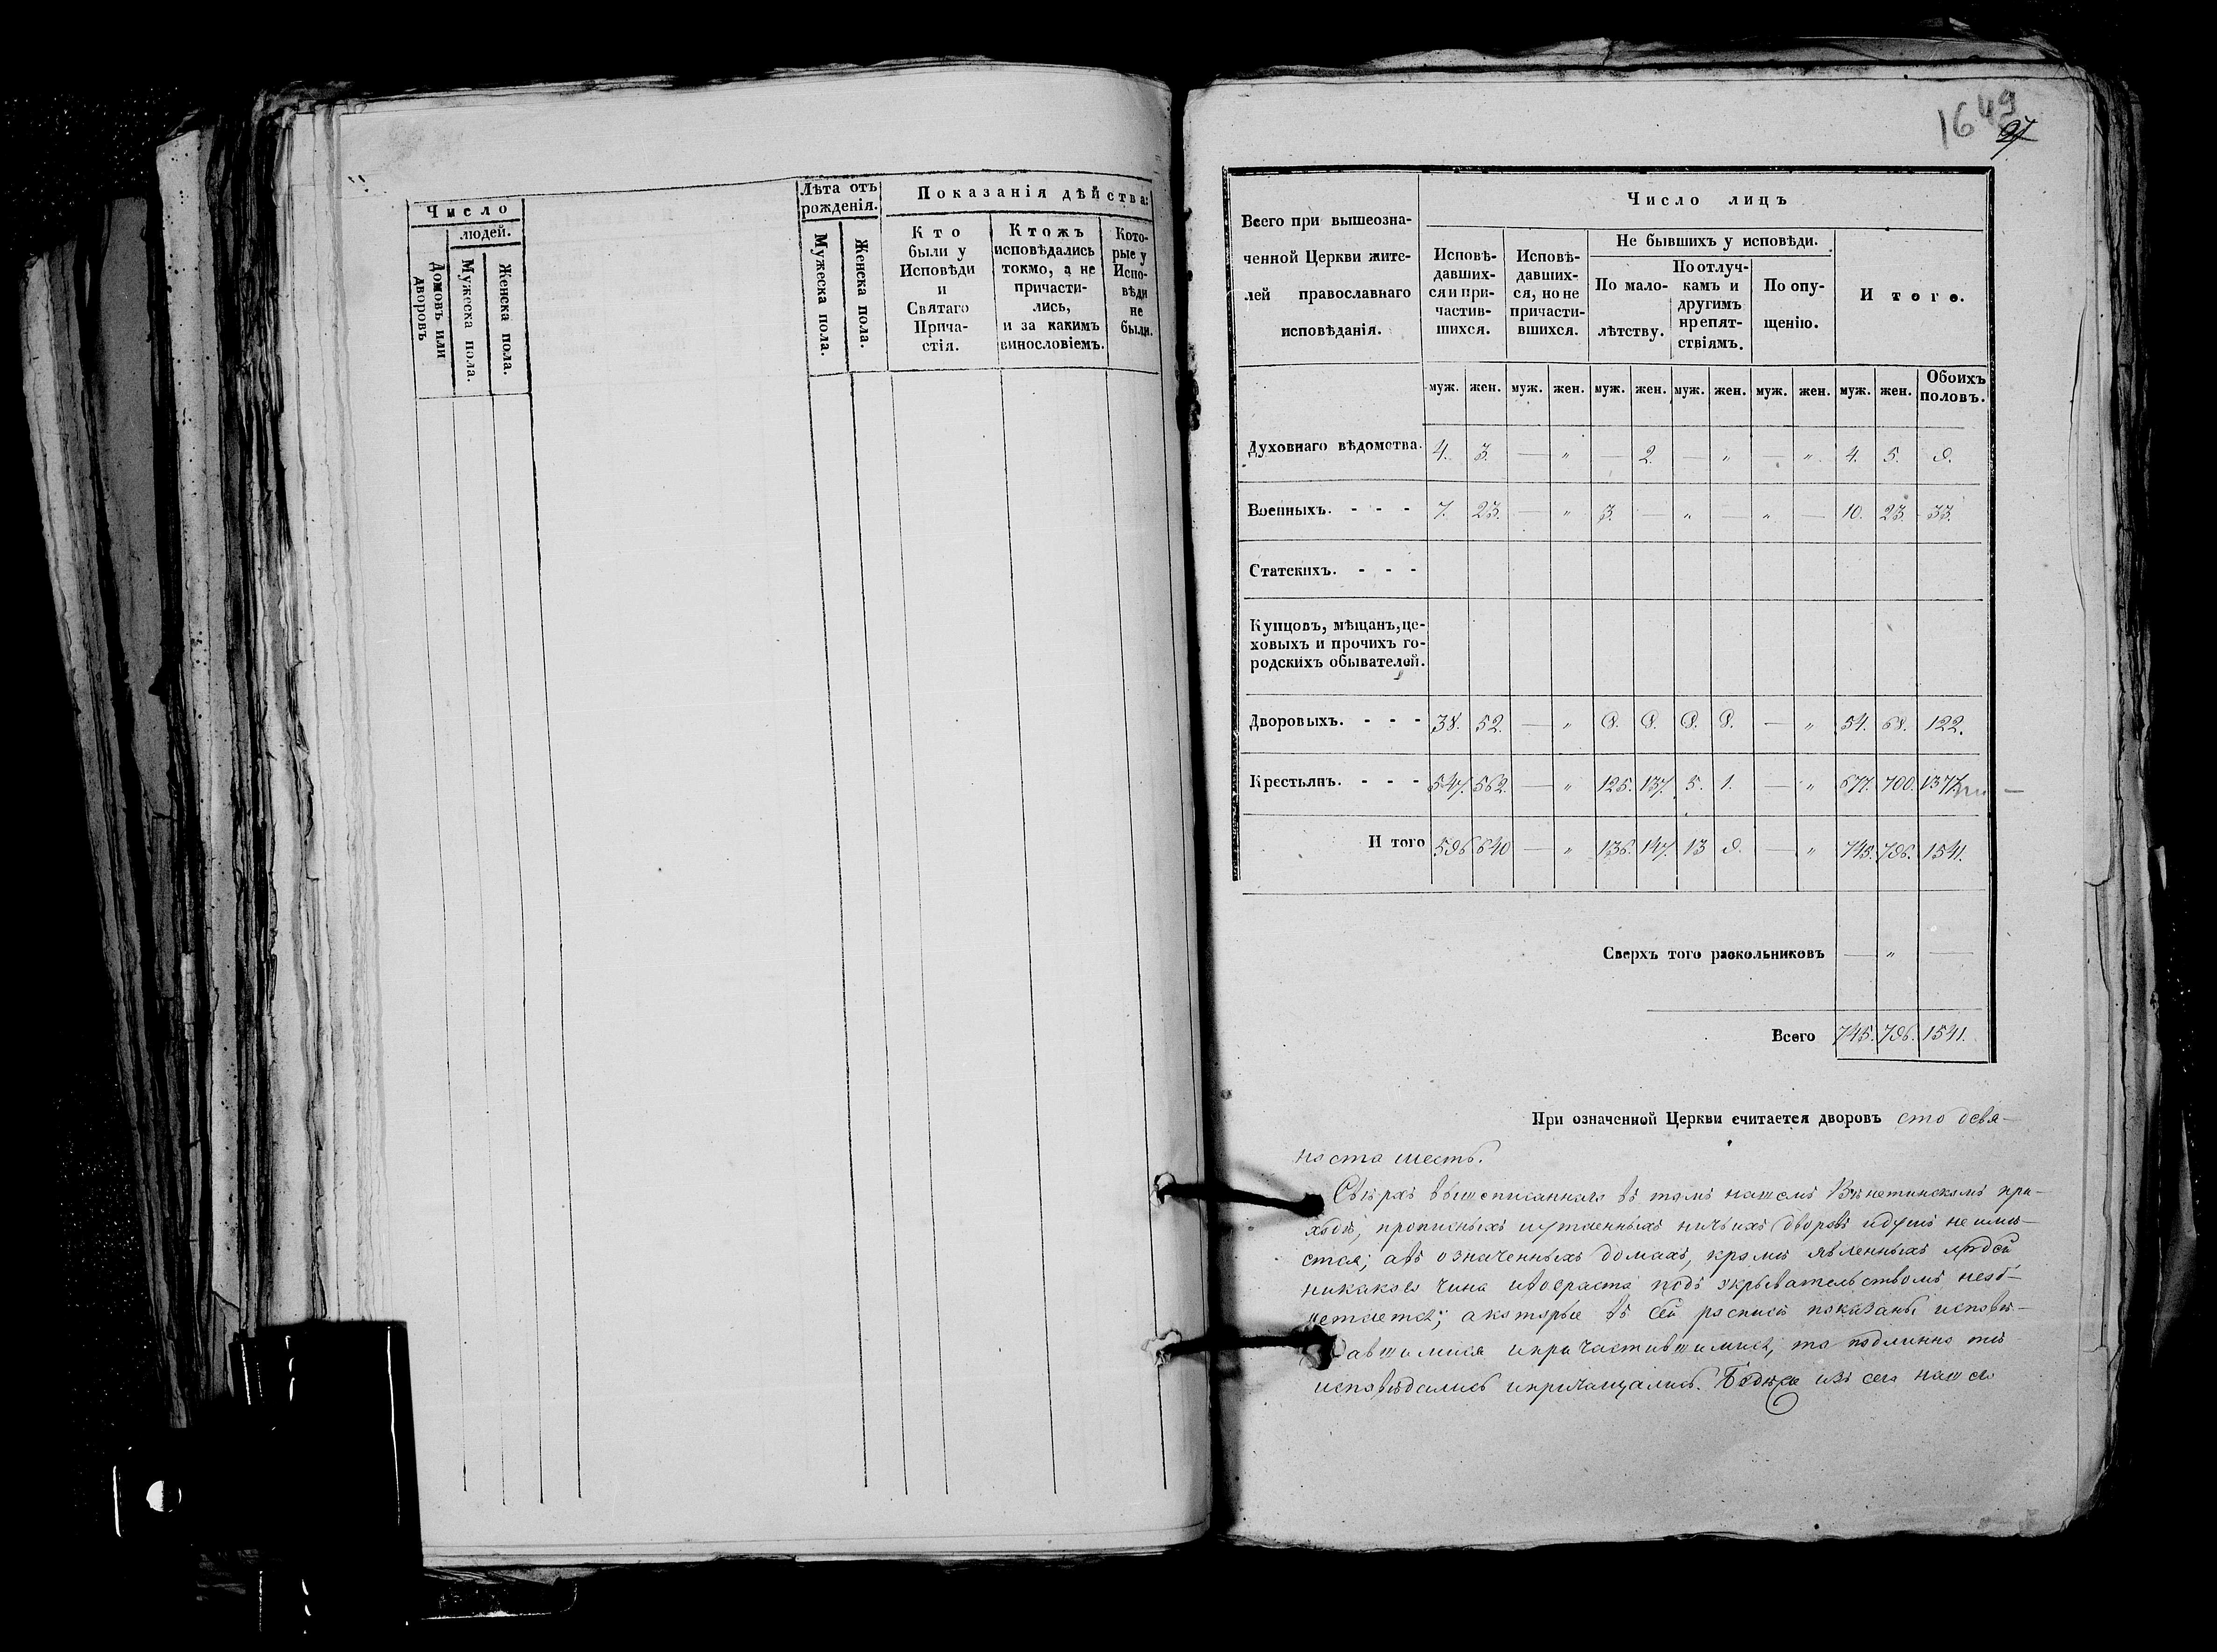 Число
людей.
Домовъ или дворовъ
Мужеска пола.
Женска пола.
Лѣта отъ
рожденія.
Мужеска пола.
Женска пола.
Показанія дѣйства:
Кто
были у
Исповѣди
и
Святаго
Прича-
стія.
Ктожъ
исповѣдались
токмо, а не
причасти-
лись,
и за какимъ
винословіемъ.
Кото-
рые у
Испо-
вѣди
не
были.
1649
27
Всего при вышеозна-
ченной Церкви жите-
лей православнаго
исповѣданія.
Число лицъ
Исповѣ-
давших-
ся и при-
частив-
шихся.
Исповѣ-
давших-
ся, но не
причасти-
вшихся.
Не бывшихъ у исповѣди.
По мало-
лѣтству.
По отлуч-
камъ и
другимъ
препят-
ствіямъ.
По опу-
щенію.
Итого.
муж. жен. муж. жен. муж. жен. муж. жен. муж. жен. муж. жен. Обоихъ половъ.
Духовнаго вѣдомства. 4. 3. — „ — 2. — „ — „ 4. 5. 9.
Военныхъ. - - - 7. 23. — „ 3. — „ — „ — 10. 23. 33.
Статскихъ. - - -
Купцовъ, мѣщанъ, це-
ховыхъ и прочихъ го-
родскихъ обывателей.
Дворовыхъ. - - - 38. 52. — „ 8. 8. 8. 8. — „ 54. 68. 122.
Крестьянъ. - - - 547. 562. — „ 125. 137. 5. 1. — „ 677. 700. 1377.
И того 596 640 — „ 136. 147. 13 9. — „ 745. 796. 1541.
Сверхъ того раскольниковъ — „ —
Всего 745. 796. 1541.
При означенной Церкви считается дворовъ сто девя-
носто шесть.
Сверхъ вышеписаннаго въ томъ нашемъ при-
ходѣ, прописныхъ и утаенныхъ ничьихъ дворовъ и душъ не имѣ-
ется; а въ означенныхъ домахъ, кромѣ явленныхъ людей
никакого чина и возраста подъ укрывательствомъ необ-
ретается; а которые въ сей росписи показаны исповѣ-
давшимися и причастившимися, то подлинно тѣ
исповѣдались и причащались. Будеже изъ сего нашего